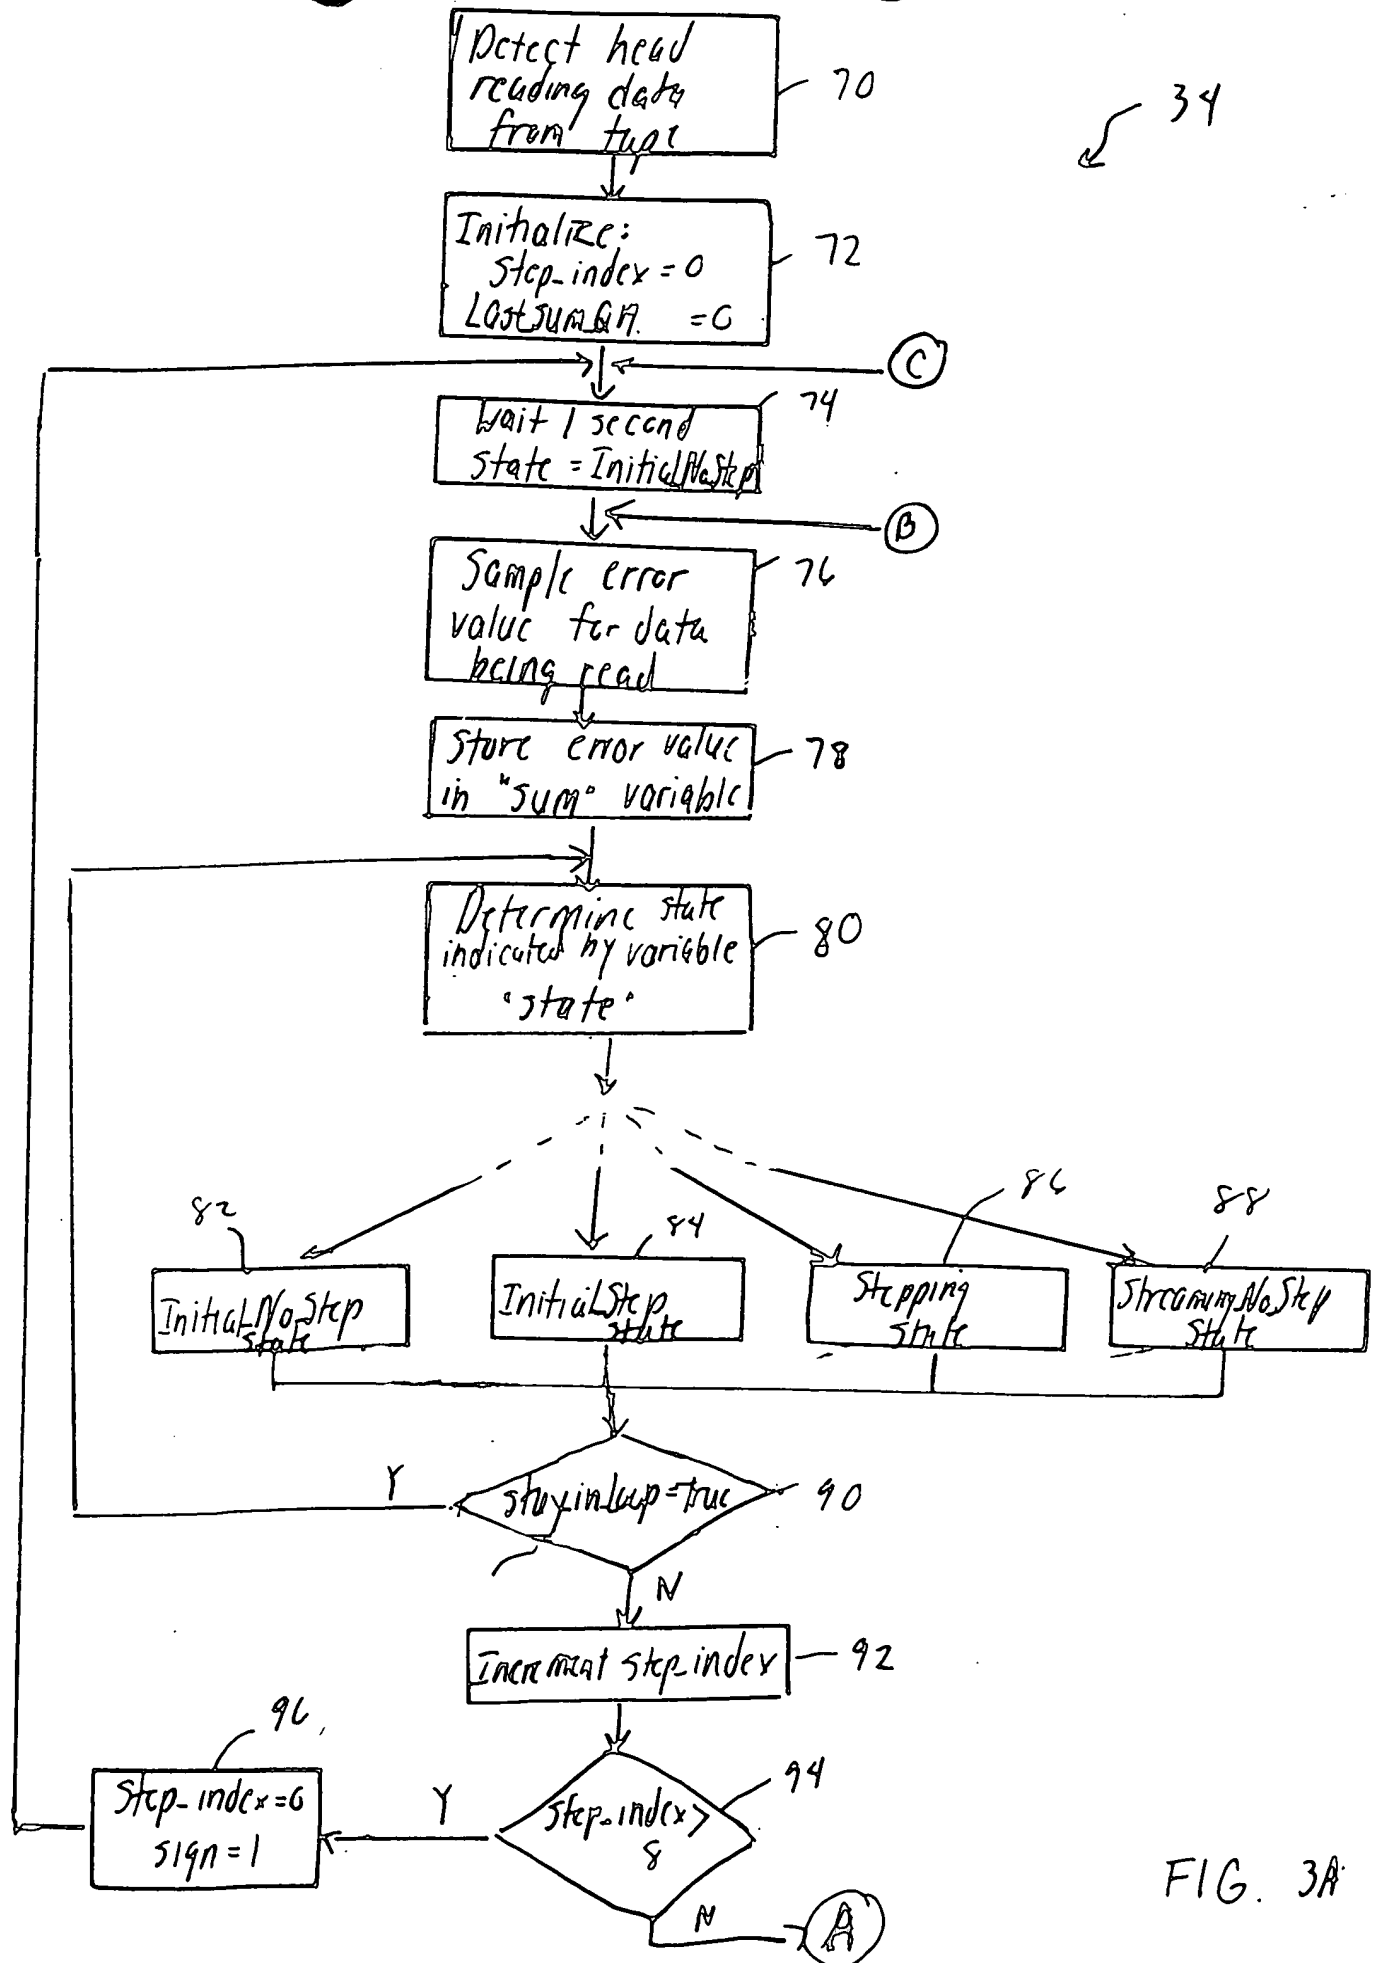 Detect head
reading data
from tape
70
34
Initialize:
step_index = 0
Lastsum_GA. = 0
72
C
Wait 1 second
state = Initial_No_Step
74
B
Sample error
value for data
being read
76
Store error value
in "sum" variable
78
Determine state
indicated by variable
"state"
80
82
84
86
88
Initial_No_Step
state
Initial_Step
state
Stepping
state
Streaming_No_Step
state
Y
stay_in_loop = true
90
N
Increment step_index
92
96
Step_index = 0
sign = 1
Y
step_index >
8
94
N
A
FIG. 3A